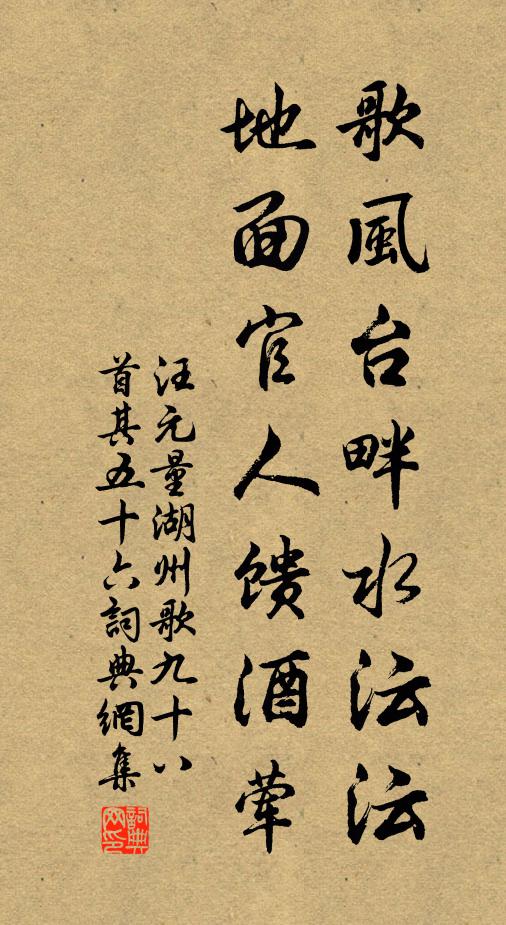 歌風台畔水沄沄
地面官人馈酒荤
汪元量湖州歌九十八
首其五十六詞典網集
詞典网印